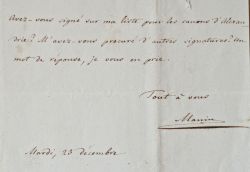 Avez-vous signé sur ma liste pour les canons d'Alexan
drie? M'avez-vous procuré d'autres signatures? Un
mot de réponse, je vous en prie.
Tout à vous
Manin
Mardi, 23 décembre